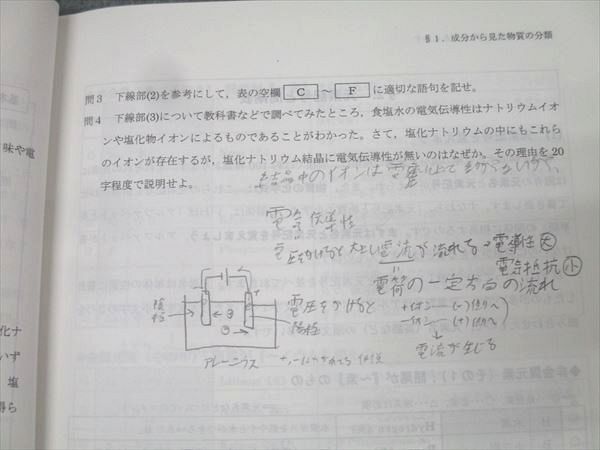 §1. 成分から見た物質の分類
問3 下線部(2)を参考にして，表の空欄 C ～ F に適切な語句を記せ。
問4 下線部(3)について教科書などで調べてみたところ，食塩水の電気伝導性はナトリウムイオ
ンや塩化物イオンによるものであることがわかった。さて，塩化ナトリウムの中にもこれら
のイオンが存在するが，塩化ナトリウム結晶に電気伝導性が無いのはなぜか。その理由を20
字程度で説明せよ。
味や電
結晶中のイオンは電圧
電気伝導性
電圧をかけると大きい電流が流れる→電導性大
電気抵抗小
電荷の一定方向の流れ
電圧をかけると
陽極
＋イオン (-)側へ
－イオン (+)側へ
電流が生じる
アレーニウス
化ナ
いず
塩
得ら